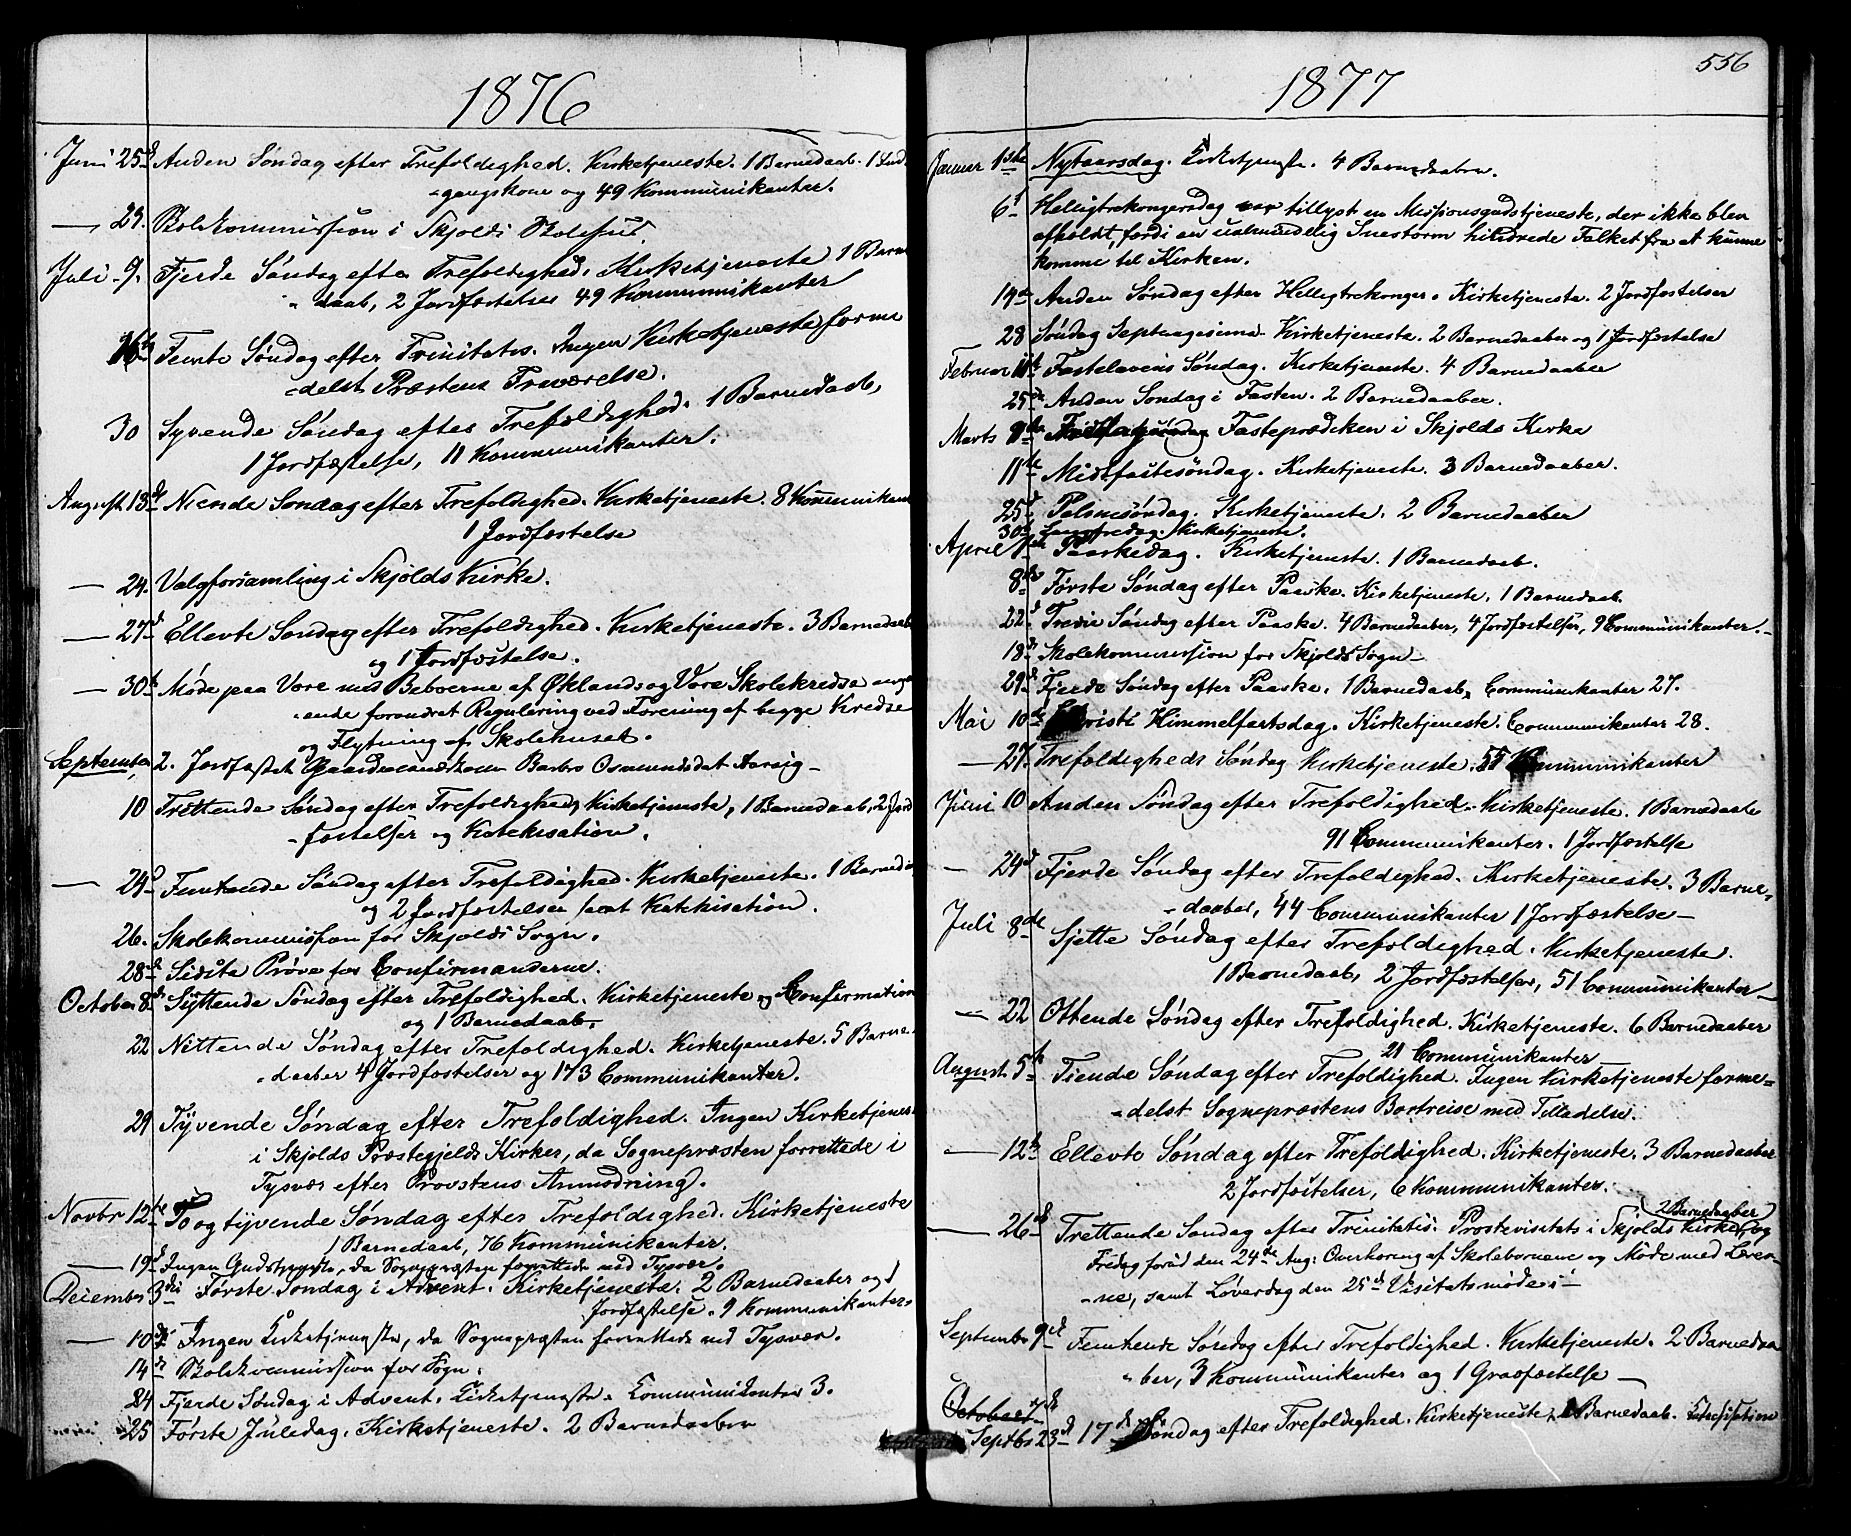 1876
Juni 25d Anden Søndag efter Trefoldighed. Kirketjeneste. 1 Barnedaab. 1 Ind-
gangskone og 49 Kommunikanter.
— 29. Skolekommission i Skjolds Skolehus.
Juli 9. Fjerde Søndag efter Trefoldighed. Kirketjeneste 1 Barne-
daab, 2 Jordfæstelser 49 Kommunikanter
16de Femte Søndag efter Trinitatis. Ingen Kirketjeneste forme-
delst Præstens Fraværelse.
30 Syvende Søndag efter Trefoldighed. 1 Barnedaab,
1 Jordfæstelse, 11 Kommunikanter.
August 13de Niende Søndag efter Trefoldighed. Kirketjeneste. 8 Kommunikan
1 Jordfæstelse
— 24. Valgforsamling i Skjolds Kirke.
— 27d Ellevte Søndag efter Trefoldighed. Kirketjeneste. 3 Barnedaab
og 1 Jordfæstelse.
— 30te Møde paa Vore med Beboerne af Øklands og Vore Skolekredse ang-
ende forandret Regulering ved Forening af begge Kredse
og Flytning af Skolehuset.
September 2. Jordfæstet Gaardmandskone Barbro Osmundsdat Aarvig
10 Trettende Søndag efter Trefoldighed, Kirketjeneste, 1 Barnedaab, 2 Jord
fæstelser og Katekisation.
— 24d Femtende Søndag efter Trefoldighed. Kirketjeneste. 1 Barned
og 2 Jordfæstelser samt Katekisation.
26. Skolekommission for Skjolds Sogn.
28de Sidste Prøve for Confirmanderne.
October 8de Syttende Søndag efter Trefoldighed. Kirketjeneste og Confirmation
og 1 Barnedaab.
22 Nittende Søndag efter Trefoldighed. Kirketjeneste. 5 Barne-
daaber 4 Jordfæstelser og 173 Communikanter.
29 Tyvende Søndag efter Trefoldighed. Ingen Kirketjenes
i Skjolds Præstegjelds Kirker, da Sognepræsten forrettede i
Tysvær efter Provstens Anmodning.
Novbr 12te To og tyvende Søndag efter Trefoldighed. Kirketjeneste
1 Barnedaab, 76 Kommunikanter.
— 19d Ingen Gudstjeneste, da Sognepræsten forrettede ved Tysvær.
December 3die Første Søndag i Advent. Kirketjeneste. 2 Barnedaaber og 1
Jordfæstelse. 9 Kommunikanter.
— 10de Ingen Kirketjeneste, da Sognepræsten forrettede ved Tysvær.
14de Skolekommission for Sogn.
24 Fjerde Søndag i Advent. Kirketjeneste. Kommunikanter 3.
25 Første Juledag. Kirketjeneste. 2 Barnedaaber
1877
556
Januar 1ste Nytaarsdag. Kirketjeneste. 4 Barnedaaber.
6t Helligtrekongersdag var tillyst en Missionsgudstjeneste, der ikke blev
afholdt, fordi en ualmindelig Snestorm hindrede Folket fra at kunne
komme til Kirken.
14de Anden Søndag efter Helligtrekonger. Kirketjeneste. 2 Jordfæstelser
28 Søndag Septuagesima. Kirketjeneste. 2 Barnedaaber og 1 Jordfæstelse
Februar 11te Fastelavens Søndag. Kirketjeneste. 4 Barnedaaber
25de Anden Søndag i Fasten. 2 Barnedaaber.
Marts 9de Fasteprædiken i Skjolds Kirke
11te Midfastesøndag. Kirketjeneste. 3 Barnedaaber.
25d Palmesøndag. Kirketjeneste. 2 Barnedaaber
30te Langfredag. Kirketjeneste.
April 1ste Paaskedag. Kirketjeneste. 1 Barnedaab.
8de Første Søndag efter Paaske. Kirketjeneste. 1 Barnedaab.
22d Tredie Søndag efter Paaske. 4 Barnedaaber, 4 Jordfæstelser, 9 Communikanter.
18de Skolekommission for Skjolds Sogn
29d Fjerde Søndag efter Paaske. 1 Barnedaab, Communikanter 27.
Mai 10de Christi Himmelfartsdag. Kirketjeneste. Communikanter 28.
— 27. Trefoldigheds Søndag Kirketjeneste. 55 Kommunikanter
Juni 10 Anden Søndag efter Trefoldighed. Kirketjeneste. 1 Barnedaab
91 Communikanter. 1 Jordfæstelse
— 24d Fjerde Søndag efter Trefoldighed. Kirketjeneste. 3 Barne-
daaber, 44 Communikanter 1 Jordfæstelse
Juli 8de Sjette Søndag efter Trefoldighed. Kirketjeneste.
1 Barnedaab, 2 Jordfæstelser, 51 Communikanter
— 22 Ottende Søndag efter Trefoldighed. Kirketjeneste. 6 Barnedaaber
21 Communikanter
August 5te Tiende Søndag efter Trefoldighed. Ingen Kirketjeneste forme-
delst Sognepræstens Bortreise med Tilladelse.
— 12te Ellevte Søndag efter Trefoldighed. Kirketjeneste. 3 Barnedaaber
2 Jordfæstelser, 6 Kommunikanter.
2 Barnedaaber
— 26de Trettende Søndag efter Trinitatis. Provstevisitats i Skjolds Kirke, og
Fredag forud den 24de Aug: Overhøring af Skolebørnene og Møde med Lærer-
ne, samt Løverdag den 25d Visitatsmøde i
September 9de Femtende Søndag efter Trefoldighed. Kirketjeneste. 2 Barnedaa
ber, 3 Kommunikanter og 1 Gravfæstelse
October 7de
Septbr 23d 17de Søndag efter Trefoldighed. Kirketjeneste, 1 Barnedaab.